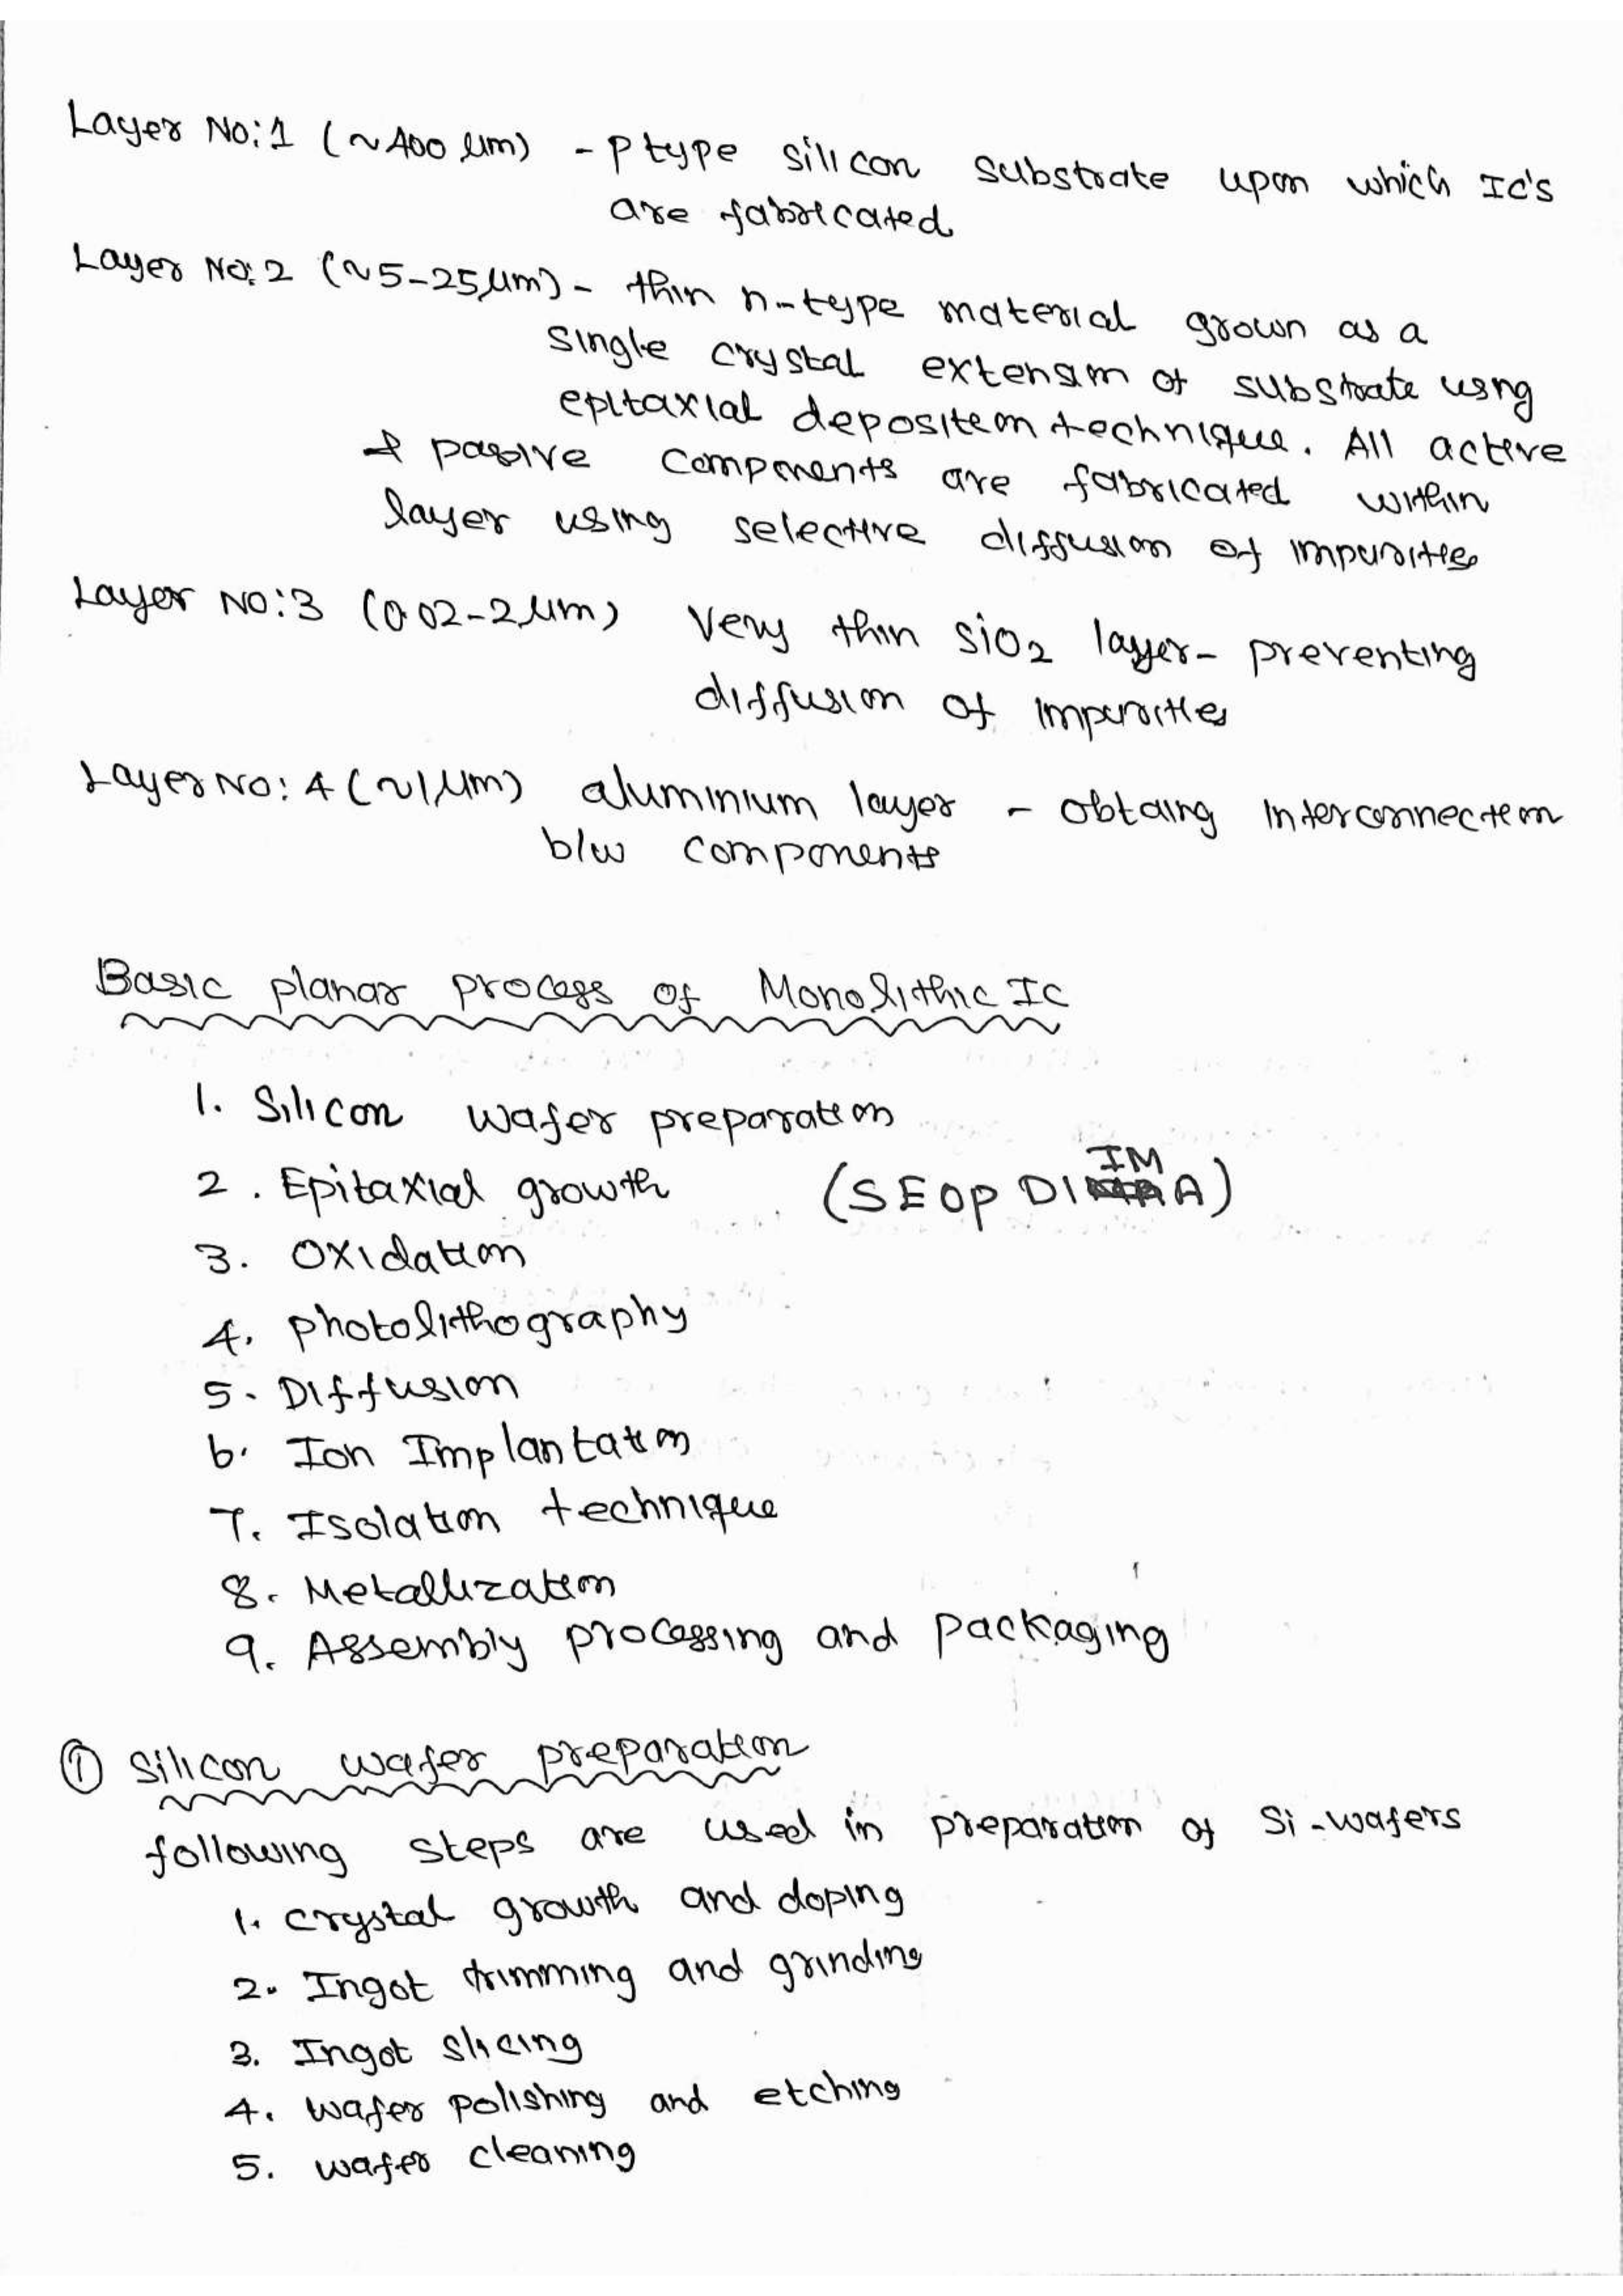 Layer No:1 (~400 μm) - P type silicon substrate upon which IC's
are fabricated
Layer No:2 (~5-25μm) - thin n-type material grown as a
single crystal extension of substrate using
epitaxial deposition technique. All active
& passive components are fabricated within
layer using selective diffusion of impurities
Layer No:3 (0.02-2μm) Very thin SiO2 layer- preventing
diffusion of impurities
Layer No: 4 (~1μm) aluminium layer - obtaing interconnection
b/w components
Basic planar process of Monolithic IC
1. Silicon wafer preparation
2. Epitaxial growth (SEOP DI IM A)
3. Oxidation
4. photolithography
5. Diffusion
6. Ion Implantation
7. Isolation technique
8. Metallization
9. Assembly processing and packaging
① Silicon wafer preparation
following steps are used in preparation of Si-wafers
1. crystal growth and doping
2. Ingot trimming and grinding
3. Ingot slicing
4. wafer polishing and etching
5. wafer cleaning